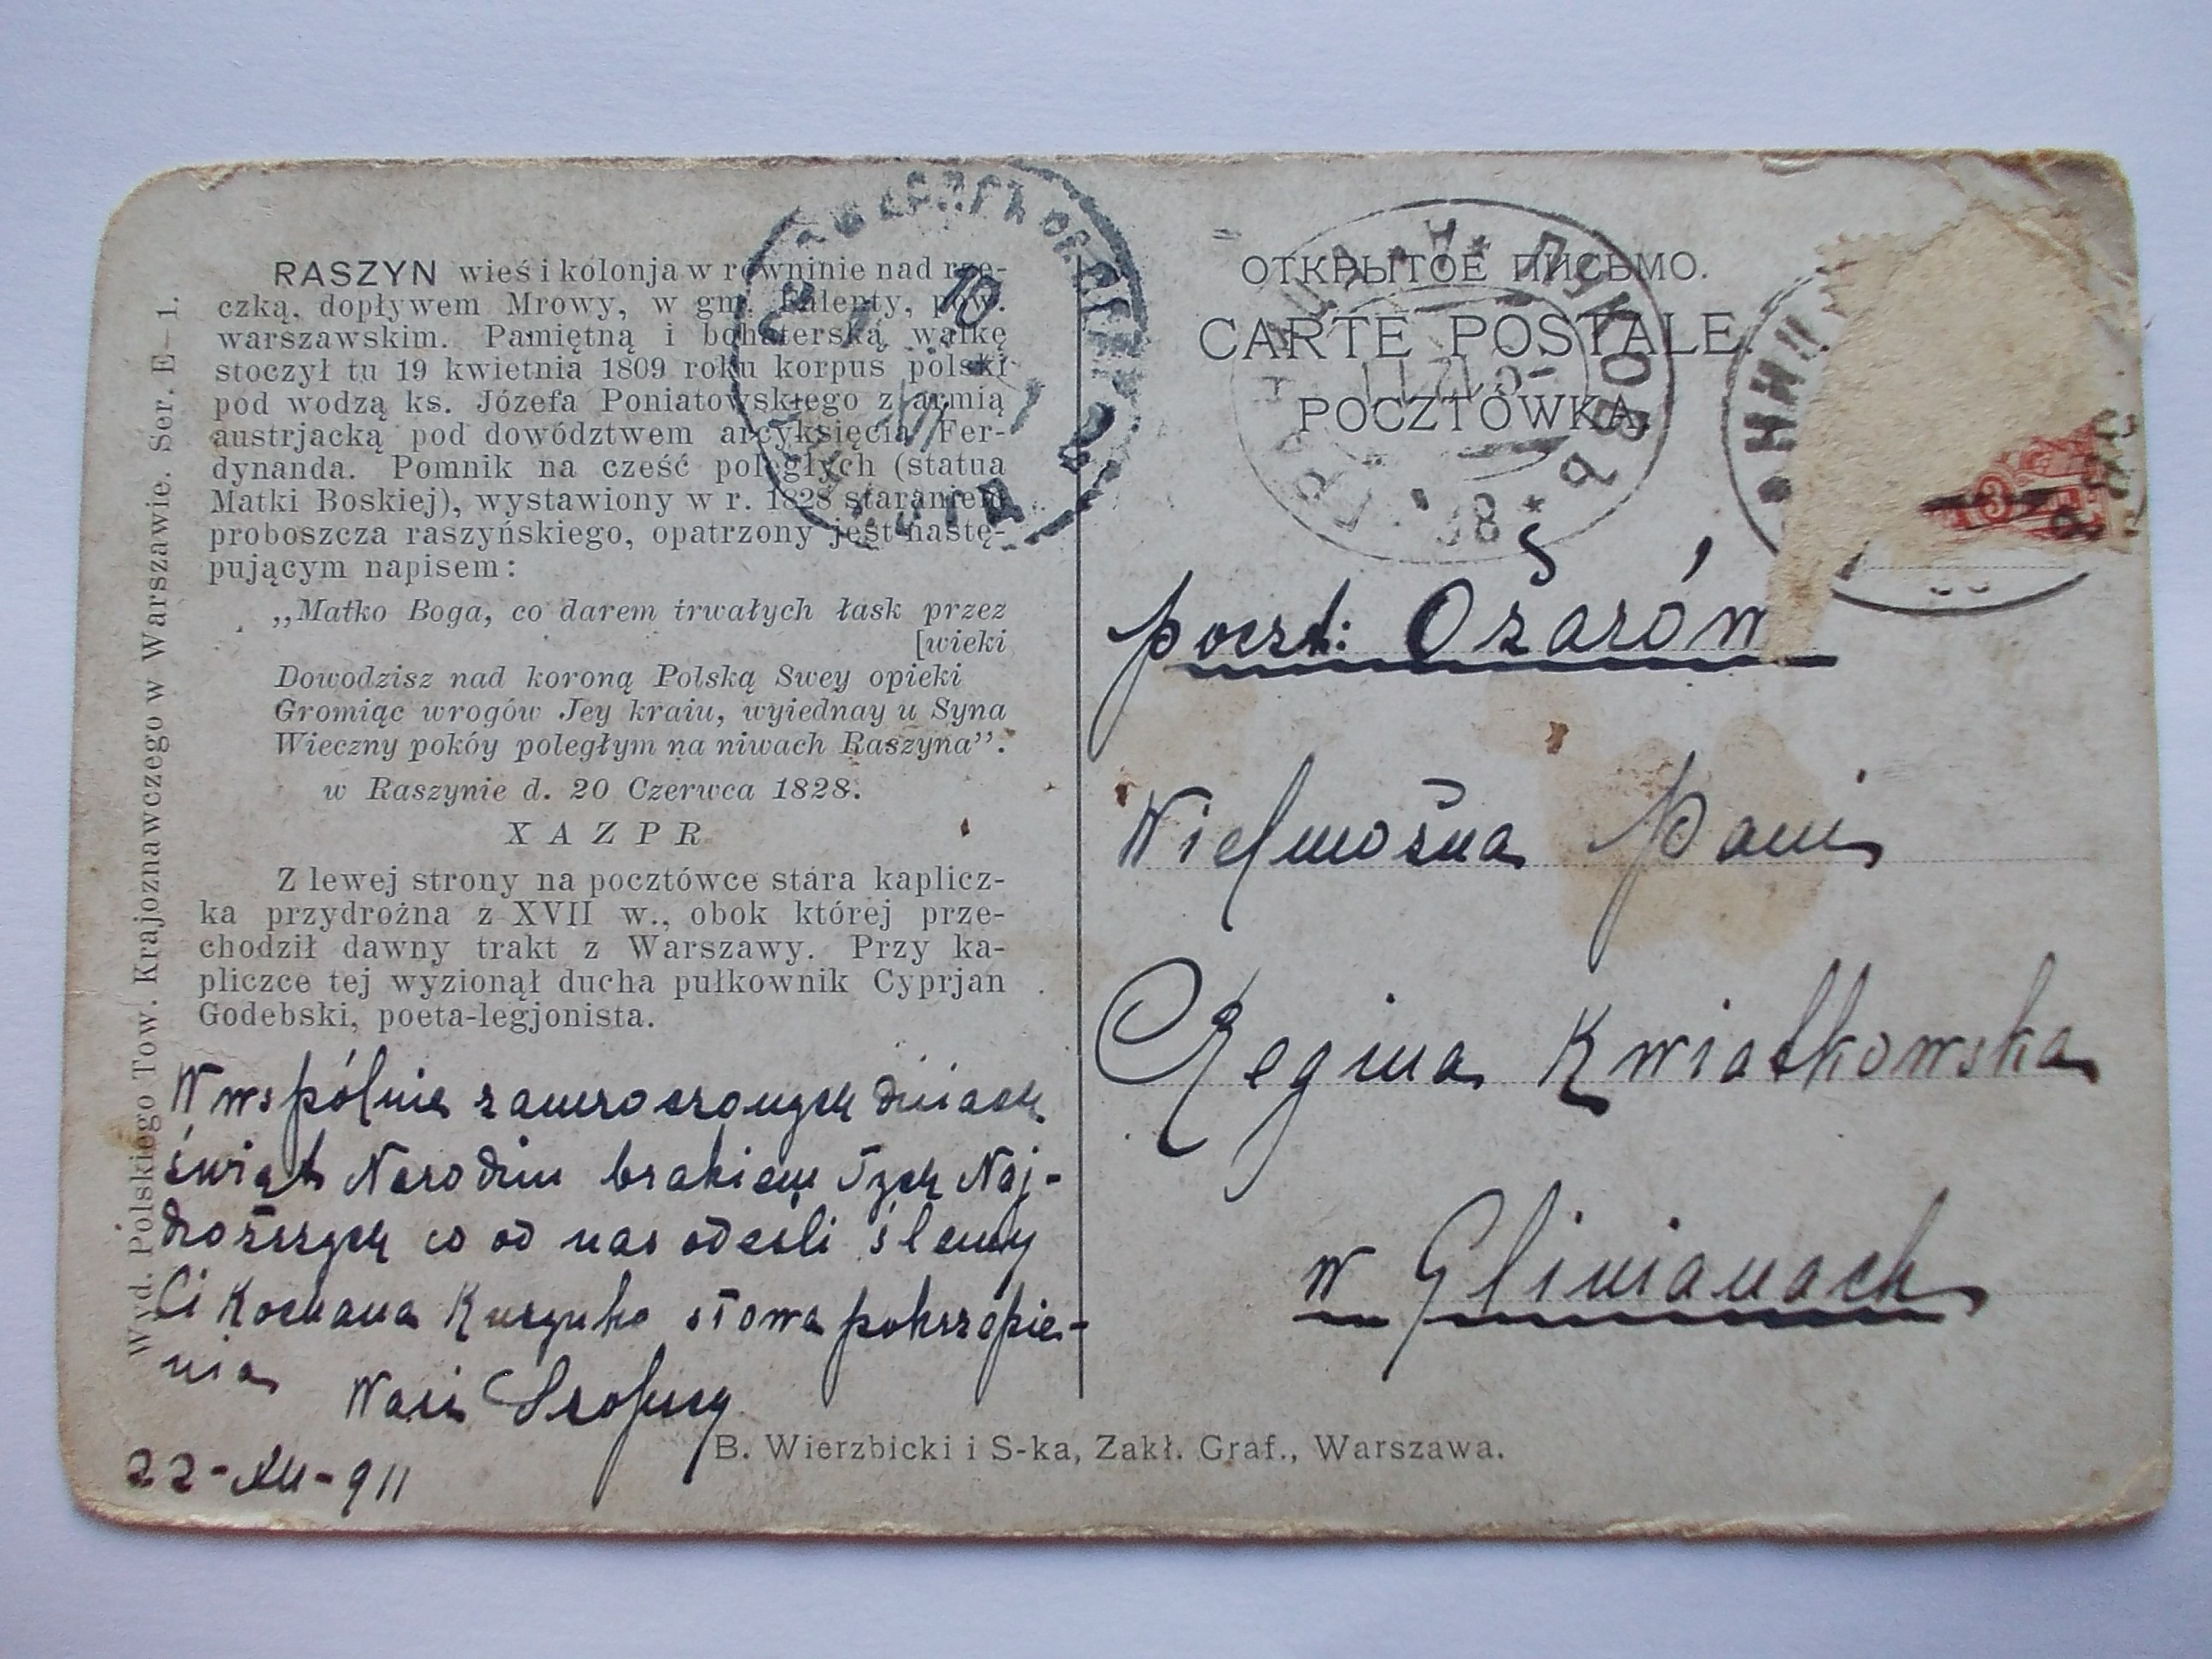 RASZYN wieś i kolonja w równinie nad rze-
czką, dopływem Mrowy, w gm. Falenty, pow.
warszawskim. Pamiętną i bohaterską walkę
stoczył tu 19 kwietnia 1809 roku korpus polski
pod wodzą ks. Józefa Poniatowskiego z armią
austrjacką pod dowództwem arcyksięcia Fer-
dynanda. Pomnik na cześć poległych (statua
Matki Boskiej), wystawiony w r. 1828 staraniem
proboszcza raszyńskiego, opatrzony jest nastę-
pującym napisem:
„Matko Boga, co darem trwałych łask przez
[wieki
Dowodzisz nad koroną Polską Swey opieki
Gromiąc wrogów Jey kraiu, wyiednay u Syna
Wieczny pokóy poległym na niwach Raszyna”.
w Raszynie d. 20 Czerwca 1828.
X A Z P R
Z lewej strony na pocztówce stara kaplicz-
ka przydrożna z XVII w., obok której prze-
chodził dawny trakt z Warszawy. Przy ka-
pliczce tej wyzionął ducha pułkownik Cyprjan
Godebski, poeta-legjonista.
W wspólnie zamroczonych dniach
świąt Narodzin brakiem Tych Naj-
droższych co od nas odeszli ślemy
Ci Kochana Kuzynko słowa pokrzepie-
nia
Wasi
22-XII-911
Wyd. Polskiego Tow. Krajoznawczego w Warszawie. Ser. E—1.
ОТКРЫТОЕ ПИСЬМО.
CARTE POSTALE.
POCZTÓWKA.
poczt: Ożarów
Wielmożna Pani
Regina Kwiatkowska
w Glinianach
B. Wierzbicki i S-ka, Zakł. Graf., Warszawa.
3